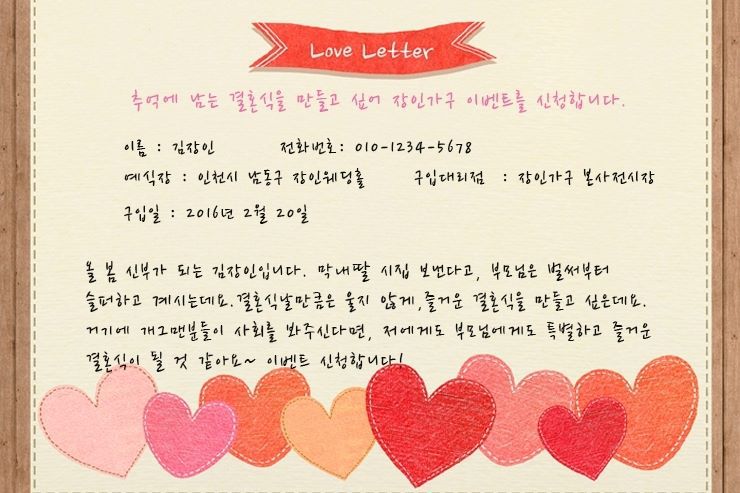 Love Letter
추억에 남는 결혼식을 만들고 싶어 장인가구 이벤트를 신청합니다.
이름 : 김장인 전화번호: 010-1234-5678
예식장 : 인천시 남동구 장인웨딩홀 구입대리점 : 장인가구 본사전시장
구입일 : 2016년 2월 20일
올 봄 신부가 되는 김장인입니다. 막내딸 시집 보낸다고, 부모님은 벌써부터
슬퍼하고 계시는데요.결혼식날만큼은 울지 않게,즐거운 결혼식을 만들고 싶은데요.
거기에 개그맨분들이 사회를 봐주신다면, 저에게도 부모님에게도 특별하고 즐거운
결혼식이 될 것 같아요~ 이벤트 신청합니다!